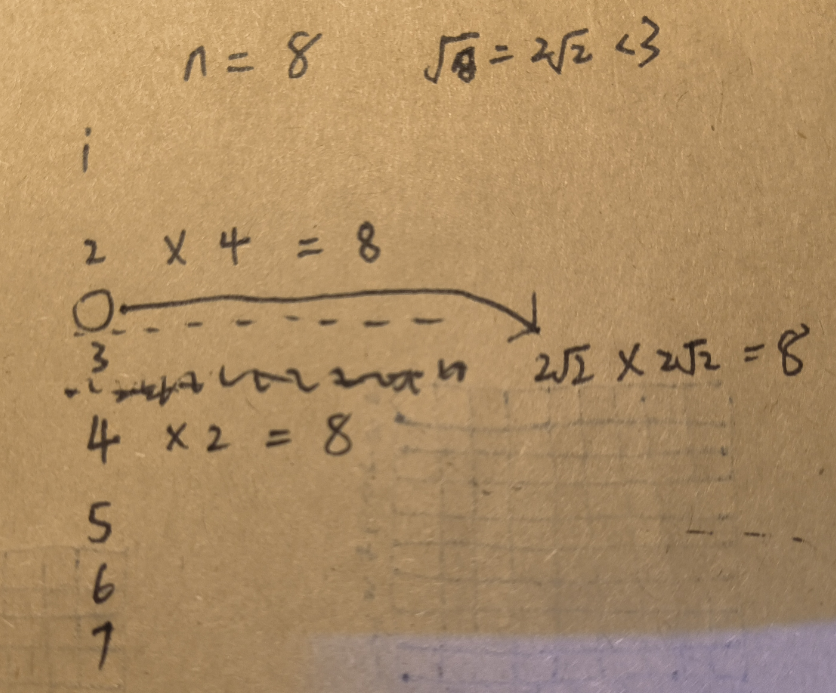 n = 8 √8 = 2√2 <3
i
2 × 4 = 8
3
2√2 × 2√2 = 8
4 × 2 = 8
5
6
7